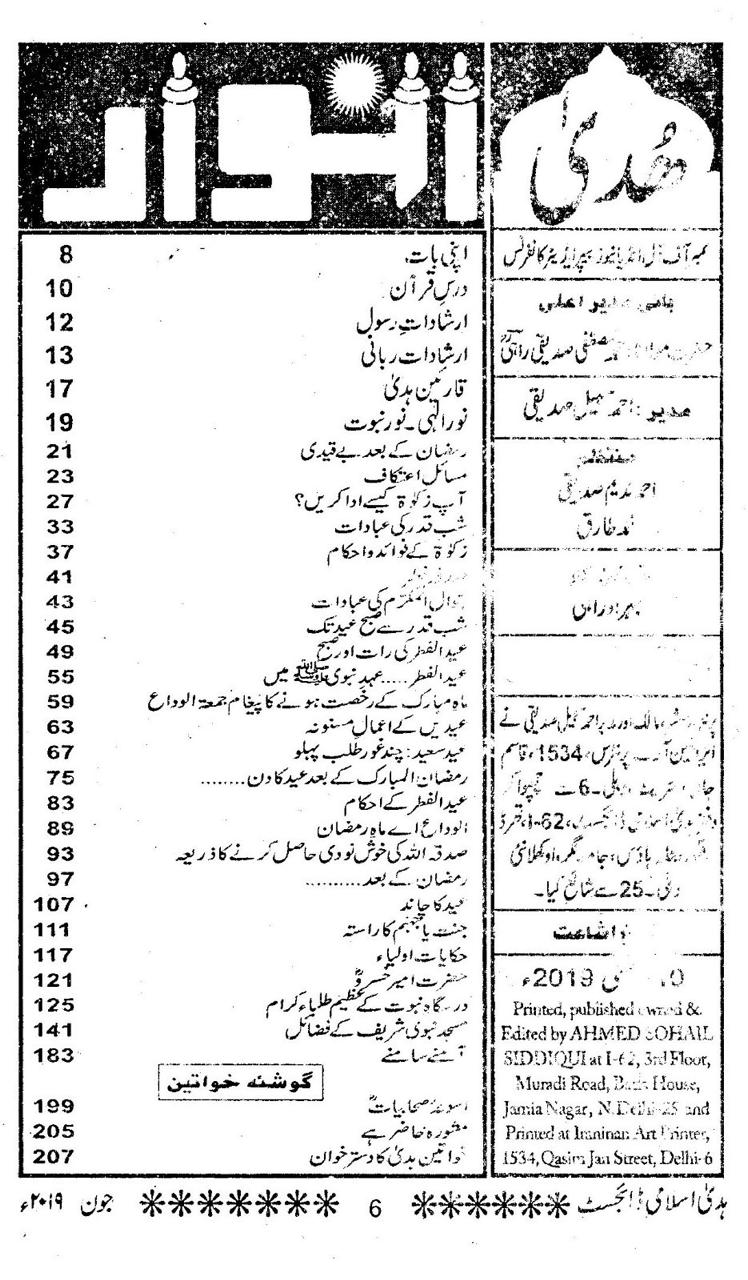 ھُدیٰ
انوار
اپنی بات 8
درسِ قرآن 10
ارشاداتِ رسول 12
ارشادات ربانی 13
قارئین ہدیٰ 17
نور الٰہی۔نور نبوت 19
رمضان کے بعد بے قیدی 21
مسائل اعتکاف 23
آپ زکوٰۃ کیسے ادا کریں؟ 27
شب قدر کی عبادات 33
زکوٰۃ کے فوائد و احکام 37
41
المکرّم کی عبادات 43
شب قدر سے صبح عید تک 45
عید الفطر کی رات اور صبح 49
عید الفطر.....عہد نبوی ﷺ میں 55
ماہ مبارک کے رخصت ہونے کا پیغام جمعۃ الوداع 59
عیدین کے اعمال مسنونہ 63
عید سعید: چند غور طلب پہلو 67
رمضان المبارک کے بعد عید کا دن........ 75
عید الفطر کے احکام 83
الوداع اے ماہ رمضان 89
صدقہ اللہ کی خوشنودی حاصل کرنے کا ذریعہ 93
رمضان کے بعد.......... 97
عید کا چاند 107
جنت یا جہنم کا راستہ 111
حکایات اولیاء 117
حضرت امیر خسروؒ 121
درسگاہ نبوت کے عظیم طلباء کرام 125
مسجد نبوی شریف کے فضائل 141
آمنے سامنے 183
گوشئہ خواتین
اسوۂ صحابیاتؓ 199
مشورہ حاضر ہے 205
خواتین ہدیٰ کا دسترخوان 207
ممبر آف آل انڈیا نیوز پیپر ایڈیٹر کانفرنس
بانی مدیر اعلی
مصطفیٰ صدیقی راہیؒ
مدیر: احمد سہیل صدیقی
منتظم
احمد ندیم صدیقی
طارق
مالک اور مدیر احمد سہیل صدیقی نے
پرنٹرس، 1534، قاسم
دہلی۔6 سے چھپوا کر
اسلامی ڈائجسٹ، I-62،
ہاؤس، جامعہ نگر، اوکھلا نئی
دہلی۔25 سے شائع کیا۔
اشاعت
2019ء
Printed, published owned &
Edited by AHMED SOHAIL
SIDDIQUI at I-62, 3rd Floor,
Muradi Road, Batla House,
Jamia Nagar, N.Delhi-25 and
Printed at Iraninan Art Printer,
1534, Qasim Jan Street, Delhi-6
ہدیٰ اسلامی ڈائجسٹ ****** 6 ******* جون ۲۰۱۹ء